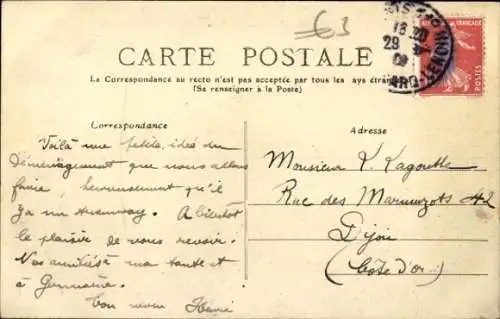 €3
CARTE POSTALE
La Correspondance au recto n'est pas acceptée par tous les ays étran
(Se renseigner à la Poste)
18 30
29
POSTES
Correspondance
Adresse
Voilà une petite idée du
déménagement que nous allons
faire, heureusement qu'il
y a un tramway. A bientôt
le plaisir de vous revoir.
Nos amitiés à ma tante et
à Germaine.
Ton neveu Henri
Monsieur K. Lagoutte
Rue des Marmuzots 42
Dijon
(Côte d'Or)